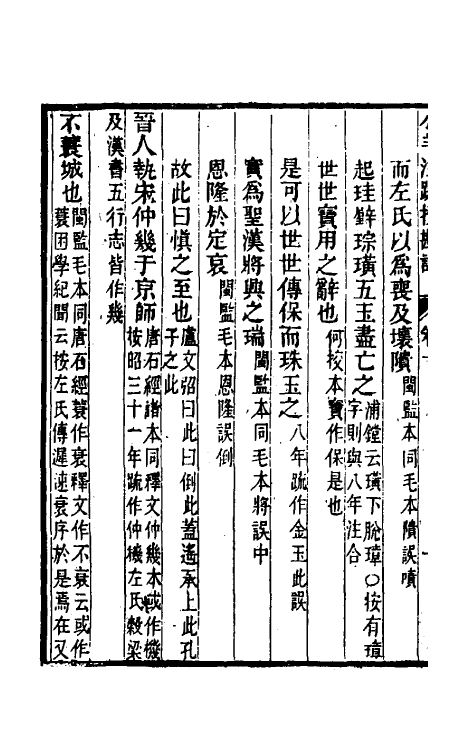 而左氏以為喪及壤隤閩監本同毛本隤誤噴
起珪璧琮璜五玉盡亡之浦鏜云璜下脫璋〇按有璋
字則與八年注合
世世寶用之辭也何校本寶作保是也
是可以世世傳保而珠玉之八年疏作金玉此誤
實為聖漢將興之瑞閩監本同毛本將誤中
恩隆於定哀閩監毛本恩隆誤倒
故此曰慎之至也盧文弨曰此曰倒此蓋遙承上此孔
子之此
晉人執宋仲幾于京師唐石經諸本同釋文仲幾本或作機
按昭三十一年疏作仲機左氏穀梁
及漢書五行志皆作幾
不蓑城也閩監毛本同唐石經蓑作衰釋文作不衰云或作
蓑困學紀聞云按左氏傳遲速衰序於是焉在又